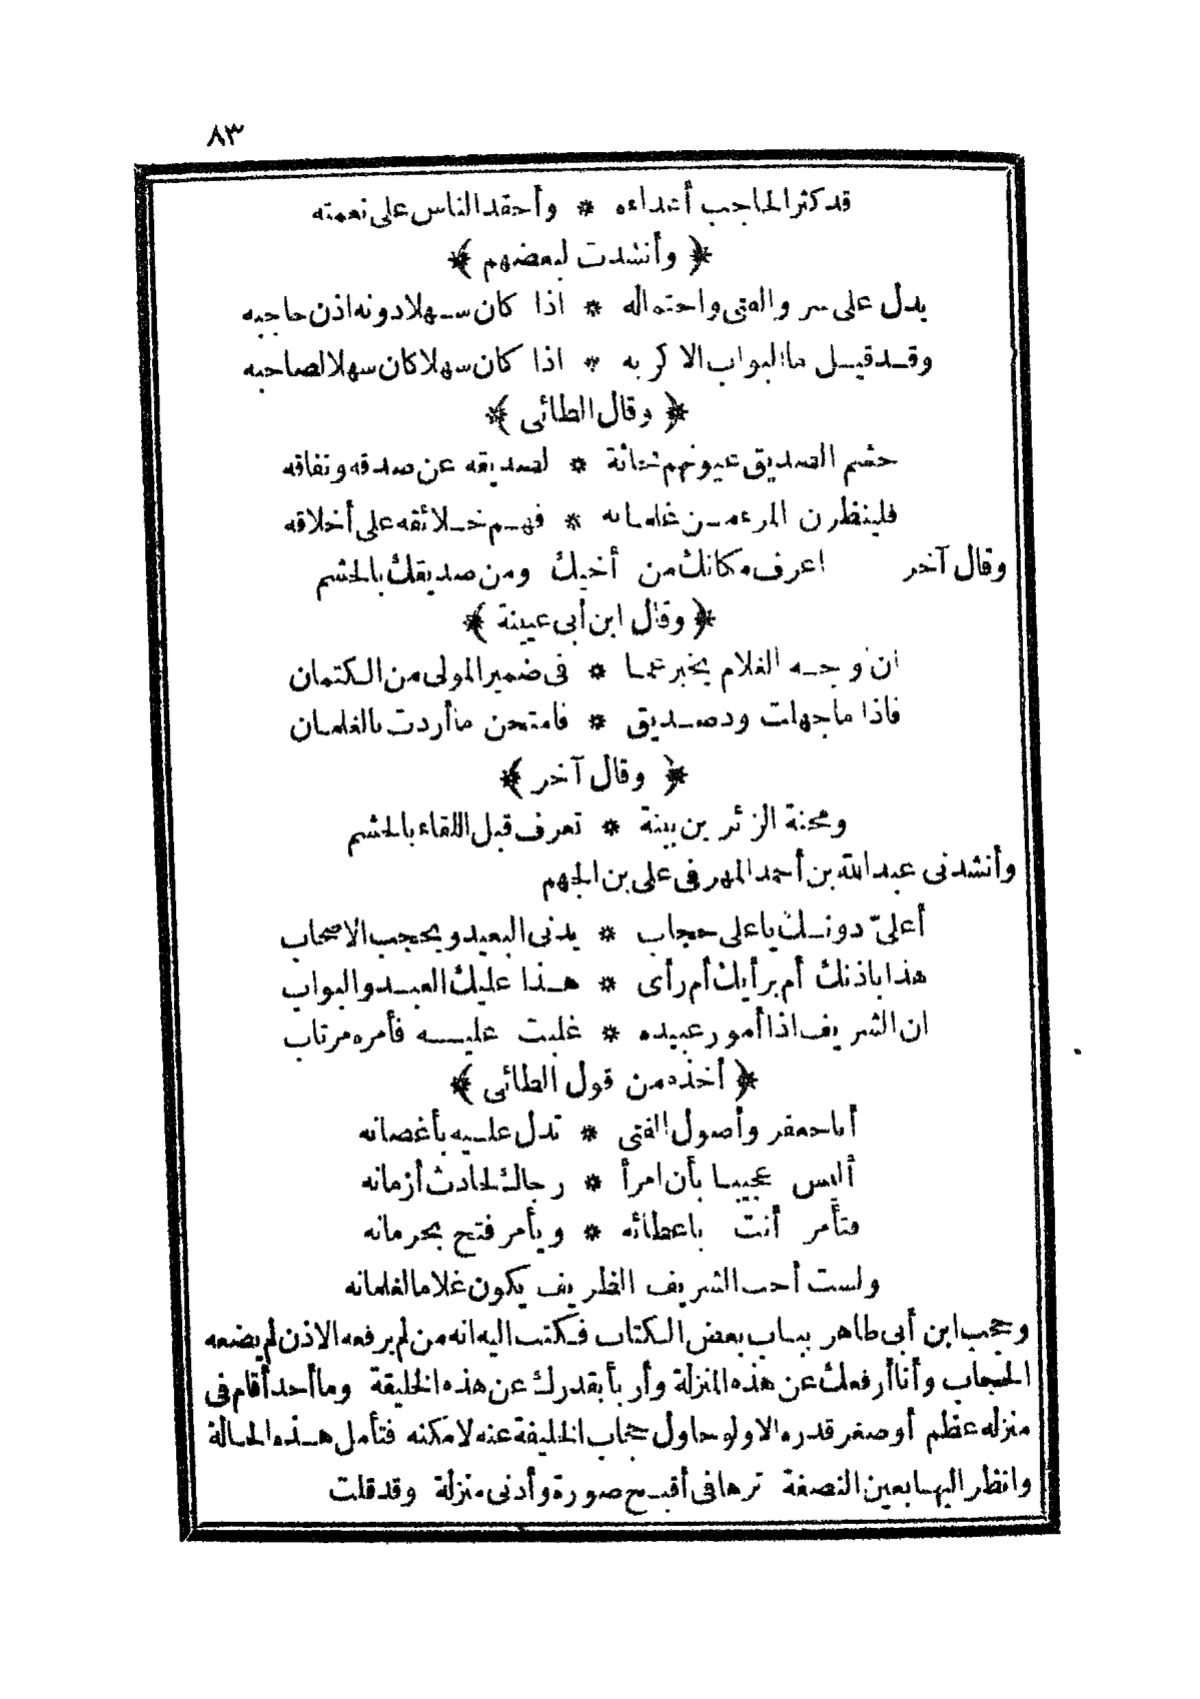 ٨٣
قد كثر الحاجب أعداءه * وأحقد الناس على نعمته
﴿ وأنشدت لبعضهم ﴾
يدل على سر والفتى واحتماله * اذا كان سهلا دونه اذن حاجبه
وقد قيل ما البواب الا كربه * اذا كان سهلا كان سهلا لصاحبه
﴿ وقال الطائى ﴾
حشم الصديق عيونهم بحاثة * لصديقه عن صدقه ونفاقه
فلينظرن المرء من غلمانه * فهم خلائقه على أخلاقه
وقال آخر اعرف مكانك من أخيك ومن صديقك بالحشم
﴿ وقال ابن أبى عيينة ﴾
ان وجه الغلام يخبر عما * فى ضمير المولى من الكتمان
فاذا ما جهلت ود صديق * فامتحن ما أردت بالغلمان
﴿ وقال آخر ﴾
ومحنة الزئر بن بينة * تعرف قبل اللقاء بالحشم
وأنشدنى عبد الله بن أحمد المهر فى على بن الجهم
أعلىّ دونك يا على حجاب * يدنى البعيد ويحجب الاصحاب
هذا باذنك أم برأيك أم رأى * هذا عليك العبد والبواب
ان الشريف اذا أمور عبيده * غلبت عليه فأمره مرتاب
﴿ أخذه من قول الطائى ﴾
أبا جعفر وأصول الفتى * تدل عليه بأغصانه
أليس عجيبا بأن امرأ * رجاك لحادث أزمانه
فتأمر أنت باعطائه * ويأمر فتح بحرمانه
ولست أحب الشريف الظريف يكون غلاما لغلمانه
وحجب ابن أبى طاهر بباب بعض الكتاب فكتب اليه انه من لم يرفعه الاذن لم يضعه
الحجاب وأنا أرفعك عن هذه المنزلة وأربأ بقدرك عن هذه الخليقة وما أحد أقام فى
منزله عظم أو صغر قدره الا ولو حاول حجاب الخليفة عنه لامكنه فتأمل هذه الحالة
وانظر اليها بعين النصفة ترها فى أقبح صورة وأدنى منزلة وقد قلت